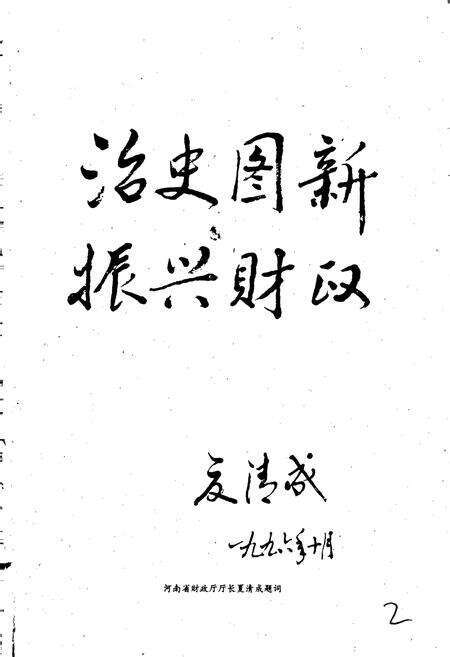 治史图新
振兴财政
夏清成
一九九六年十月
河南省财政厅厅长夏清成题词
2